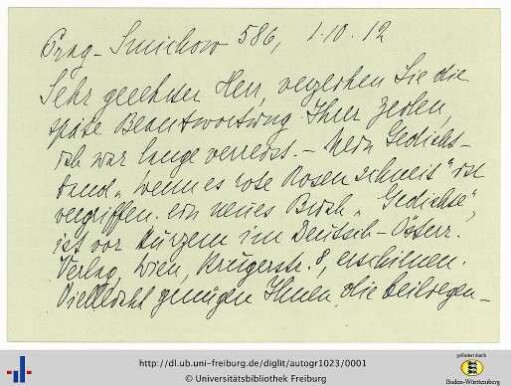 Prag-Smichow 586, 1.10.12
Sehr geehrter Herr, verzeihen Sie die
späte Beantwortung Ihrer Zeilen,
ich war lange verreist. – Mein Gedicht-
band „Wenn es rote Rosen schneit" ist
vergriffen. Ein neues Buch „Gedichte",
ist vor kurzem im Deutsch-Österr.
Verlag, Wien, Krugerstr. 8, erschienen.
Vielleicht genügen Ihnen die beiliegen-
http://dl.ub.uni-freiburg.de/diglit/autogr1023/0001
© Universitätsbibliothek Freiburg
gefördert durch
Baden-Württemberg